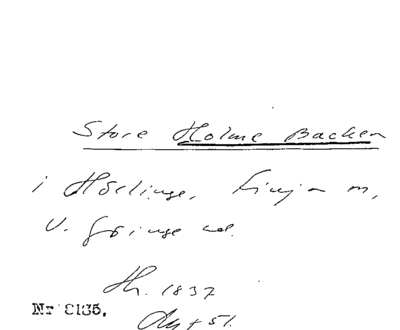 Store Holme Backen
i Hörlinge, Finja m,
V. Göinge hd.
Th. 1837
Nr 8135.